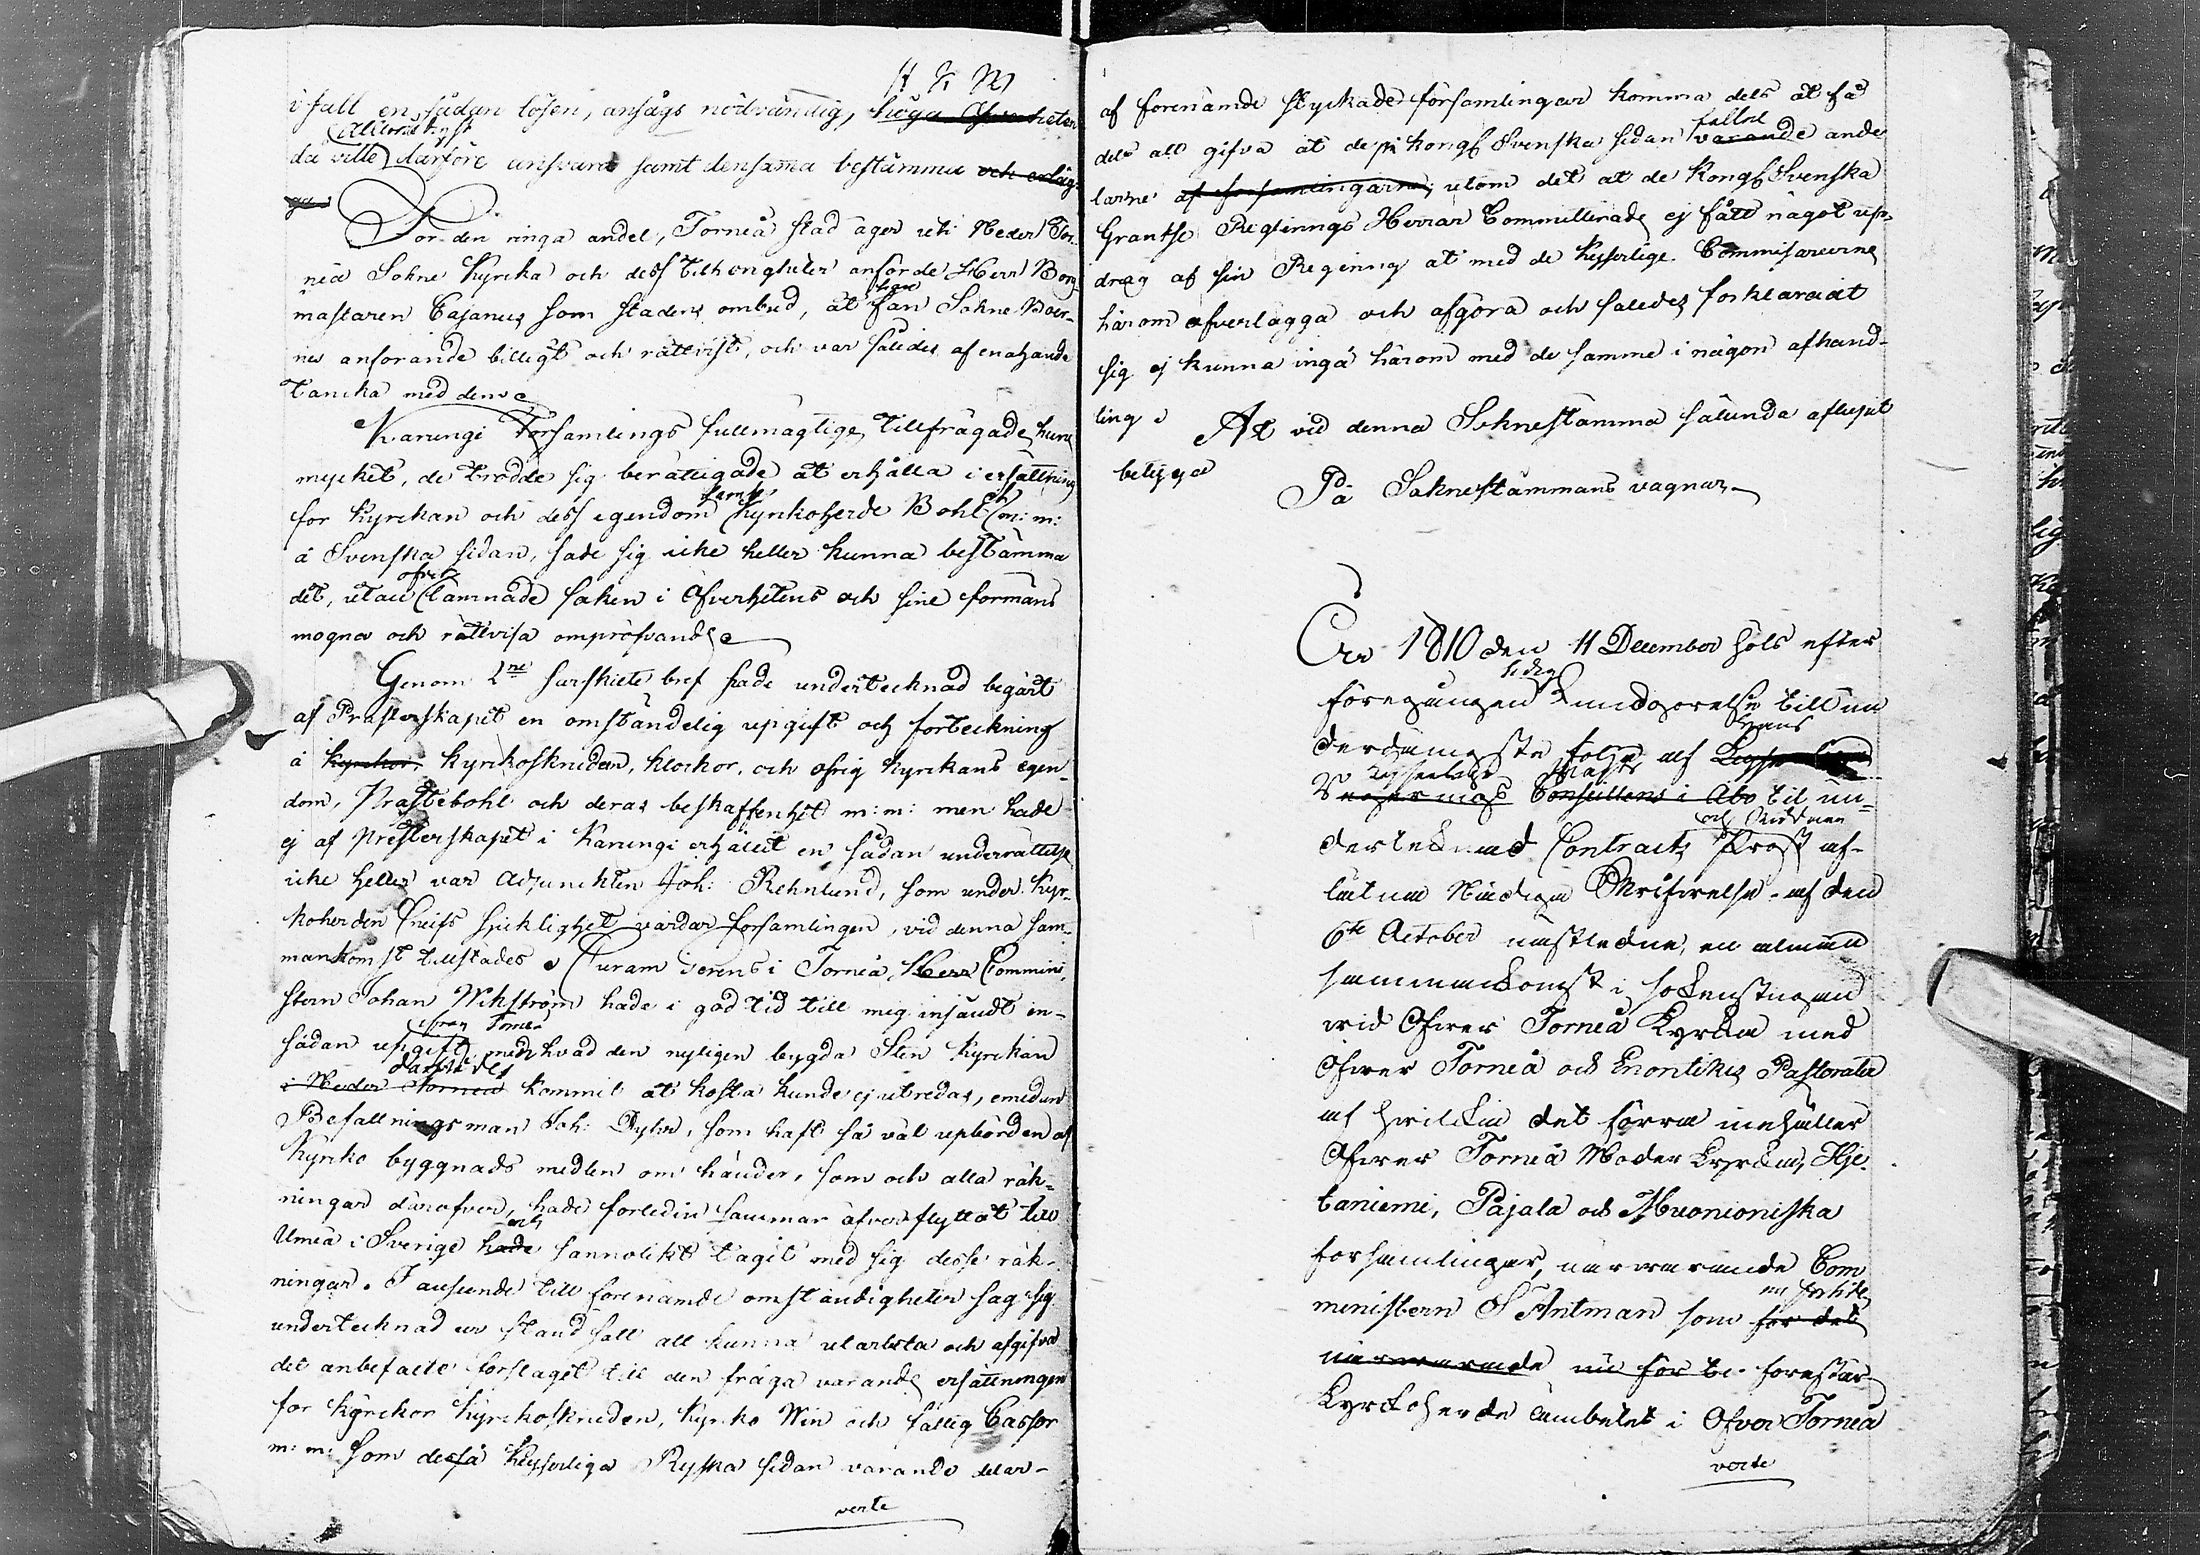 H K M
i fall en sådan lösen, ansågs nödvändig, höga Öfverheten
allernådigst
då ville därföre ansvara samt densamma bestämma och erläg-
ga
För den ringa andel, Torneå stad äger uti Neder Tor-
neå Sokne Kyrcka och dess tillhörigheter anförde Herr Borg-
mästaren Cajanus som stadens ombud, at han Sokne Boer-
nes anförande billigt och rättvist, och var således af enahanda
tancka med dem
Karungi Församlings fullmägtige, tillfrågade, huru
mycket, de trodde sig berättigade at erhålla i ersättning
samt
för kyrckan och dess egendom Kyrkoherde Bohl m: m:
å Svenska sidan, sade sig icke heller kunna bestämma
det, utan lämnade saken i Öfverhetens och sine förmäns
mogna och rättvisa ompröfvande
Genom 2ne särskilte bref hade undertecknad begärt
af Prästerskapet en omständelig upgift och förteckning
å kyrckor, kyrkoskruden, klockor, och öfrig kyrckans egen-
dom, Prästebohl och deras beskaffenhet m: m: men hade
ej af Presterskapet i Karungi erhållit en sådan underrättelse
icke heller var Adjunckten Joh: Rehnlund, som under Kyr-
koherden sjucklighet vårdar församlingen, vid denna sam-
mankomst tillstädes. Curam gerens i Torneå, Herr Commini-
stern Johan Wikström hade i god tid till mig insändt en
ifrån Torneå
sådan upgift, med hvad den nyligen bygda Sten Kyrckan
därstädes
i Neder Torneå kommit at kosta kunde ej utredas, emedan
Befallningsman Joh: som haft så väl upbörden af
Kyrko byggnads medlen om händer, som och alla räk-
ningar däröfver, hade förleden sommar öfverflyttat till
och
Umeå i Sverige hade sannolikt tagit med sig desse räk-
ningar. I anseende till förenämde omständigheter såg sig
undertecknad ur stånd satt att kunna utarbeta och afgifva
det anbefalte förslaget till den fråga varande ersättningen
för Kyrckor Kyrckoskruden, Kyrko Win och fattig Cassor
m: m: Som de på Keyserliga Ryska sidan varande delar-
verte
af förenämde styckade församlingar komma dels at få
fallne
dels att gifva åt de på Kongl Svenska sidan varande ande-
larne af församlingarne; utom det at de Kongl Svenska
Gräntse Reglerings Herrar Committerade ej fått något up-
drag af sin Regering at med de Keyserlige Commissarierne
härom öfverlägga och afgöra och således förklarat
sig ej kunna ingå härom med de samme i någon afhand-
ling
At vid denna Soknestämma sålunda aflupit
betyga
På Soknestämmans vägnar
År 1810 den 11 December höls efter
föregången kundgörelse till un
Hans
derdånigste följe af
Kejserliga Majts
Conseillens i Åbo til un-
och Riddaren
dertecknad Contracts Prost af-
låtna Nådiga Skrifvelse af den
6te October nästledne, en almän
sammankomst i sockenstugan
vid Öfver Torneå Kyrcka med
Öfver Torneå och Enontekis Pastorater
af hvilcka det förra inehåller
Öfver Torneå Moder Kyrcka, Hje-
taniemi, Pajala och Muonioniska
församlingar, närvarande Com
ministern S Antman som för det
närvarande nu för ti. förestår
Kyrckoherde ämbetet i Öfver Torneå
verte